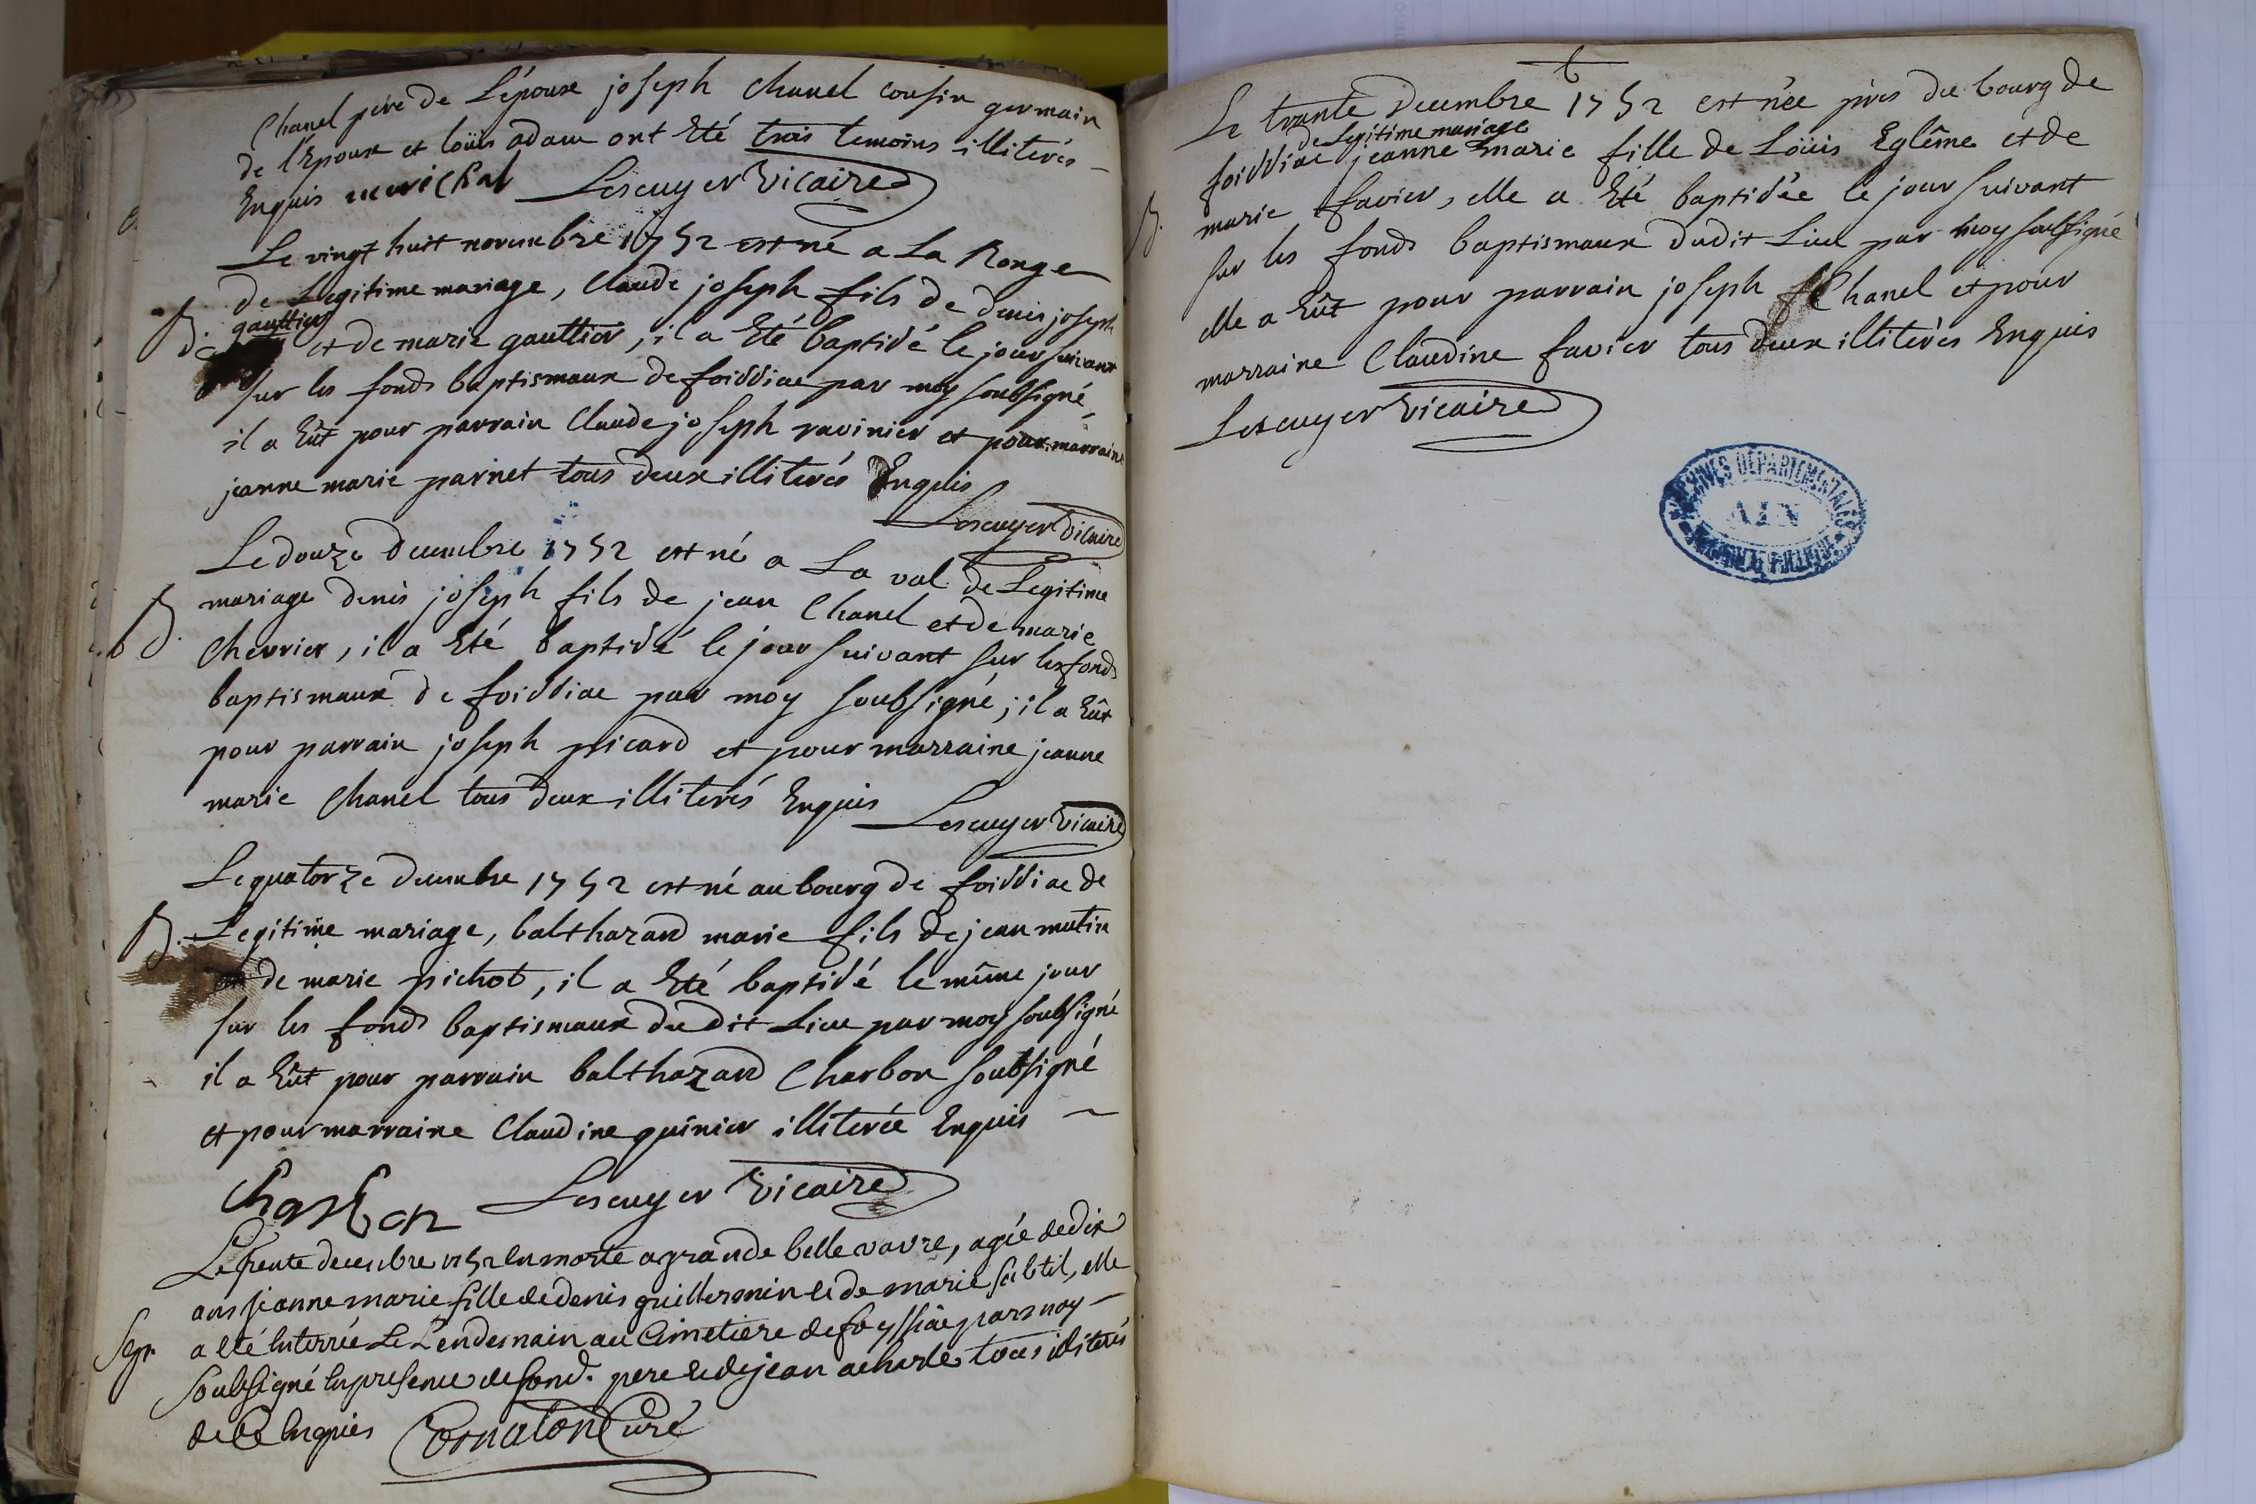 Chanel père de L'épouse joseph Chanel cousin germain
de l'Epoux et loüis adam ont Eté trois temoins illiterés
Enquis Lescuyer Vicaire
Le vingt huit novembre 1752 est né a La Ronge
de Legitime mariage, Claude joseph fils de denis joseph
gaultier
et de marie gaultier, il a Eté baptisé le jour suivant
sur les fonds baptismaux de foissiac par moy soubsigné
il a Eût pour parrain Claude joseph ravinier et pour marraine
jeanne marie parnet tous deux illiterés Enquis
Lescuyer Vicaire
Le douze decembre 1752 est né a La val de Legitime
B. mariage denis joseph fils de jean Chanel et de marie
Chevrier, il a Eté baptisé le jour suivant sur les fonds
baptismaux de foissiac par moy soubsigné ; il a Eût
pour parrain joseph picard et pour marraine jeanne
marie Chanel tous deux illiterés Enquis
Lescuyer Vicaire
Le quatorze decembre 1752 est né au bourg de foissiac de
B. Legitime mariage, balthazard marie fils de jean mutin
de marie pichot, il a Eté baptisé le même jour
sur les fonds baptismaux du dit Lieu par moy soubsigné
il a Eût pour parrain balthazard Charbon soubsigné
et pour marraine Claudine guinier illiterée Enquis
Charbon Lescuyer Vicaire
Le trente decembre 1752 En morte a grande belle vavre, agée de dix
ans jeanne marie fille de denis guillermin et de marie subtil, elle
Sep. a eté Enterrée Le Lendemain au Cimetiere de foyssiac par moy
soubsigné En presence de pere et de jean tous illiterés
de ce Enquis Cornaton Curé
Le trente Decembre 1752 est née près du bourg de
de Legitime mariage
foissiac jeanne marie fille de Loüis Eglême et de
B. marie favier, elle a Eté baptisée le jour suivant
sur les fonds baptismaux dudit Lieu par moy soubsigné
elle a Eût pour parrain joseph Chanel et pour
marraine Claudine favier tous deux illiterés Enquis
Lescuyer Vicaire
ARCHIVES DÉPARTEMENTALES
AIN